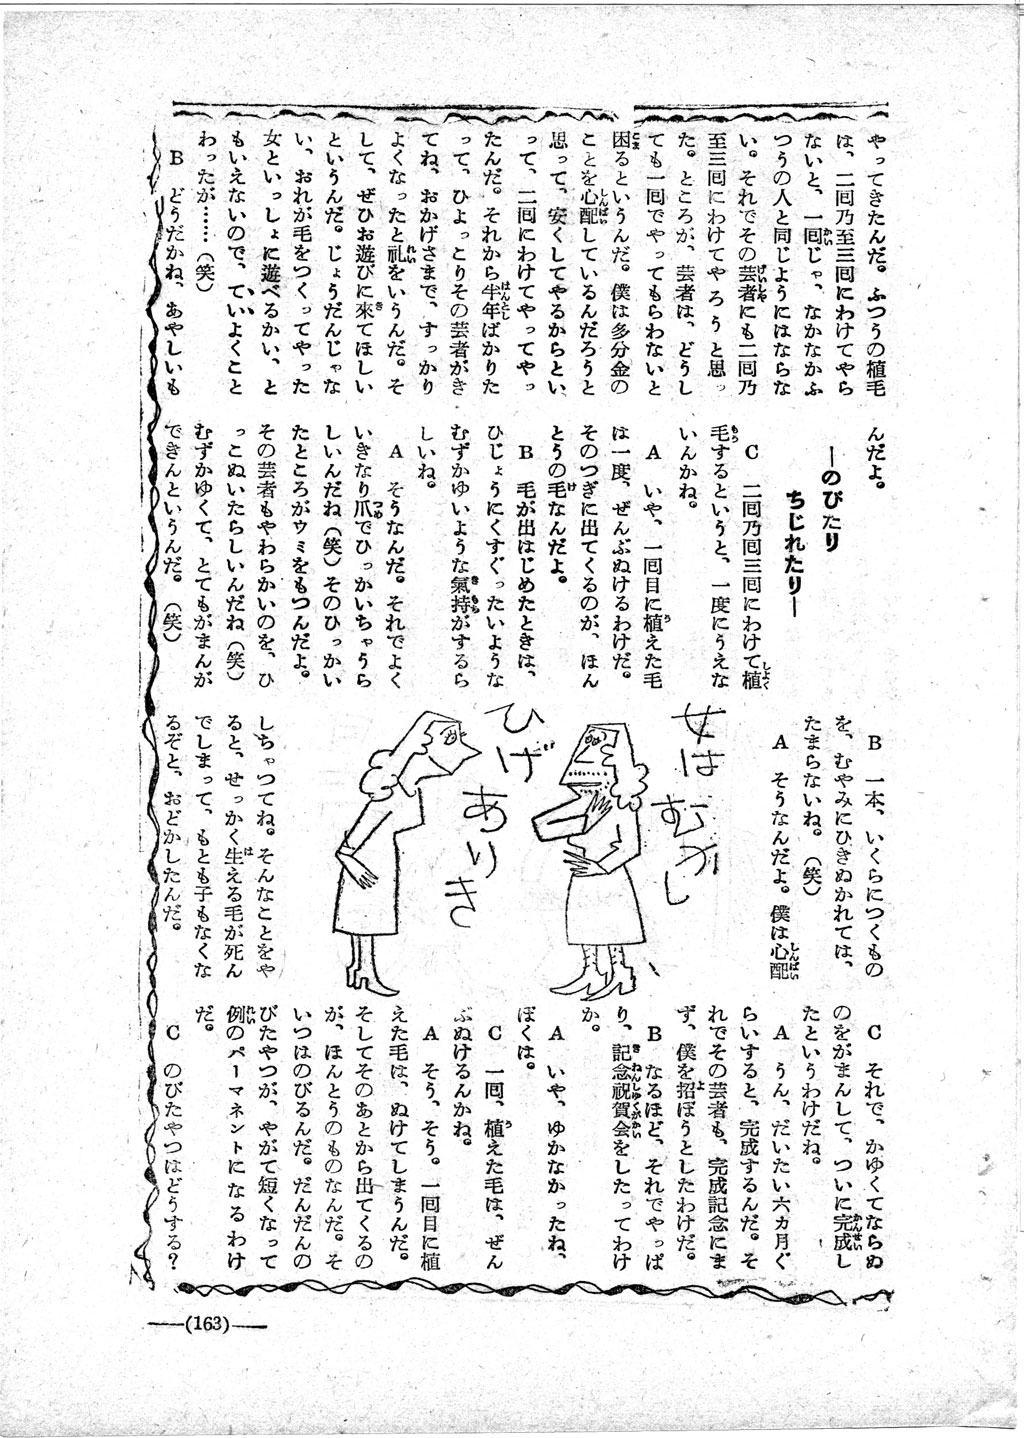 やってきたんだ。ふつうの植毛
は、二囘乃至三囘にわけてやら
ないと、一囘じゃ、なかなかふ
つうの人と同じようにはならな
い。それでその芸者にも二囘乃
至三囘にわけてやろうと思っ
た。ところが、芸者は、どうし
ても一囘でやってもらわないと
困るというんだ。僕は多分金の
ことを心配しているんだろうと
思って、安くしてやるからとい
って、二囘にわけてやってやっ
たんだ。それから半年ばかりた
って、ひょっこりその芸者がき
てね、おかげさまで、すっかり
よくなったと礼をいうんだ。そ
して、ぜひお遊びに來てほしい
というんだ。じょうだんじゃな
い、おれが毛をつくってやった
女といっしょに遊べるかい、と
もいえないので、ていよくこと
わったが……（笑）
B　どうだかね、あやしいも
んだよ。
―のびたり
ちじれたり―
C　二囘乃囘三囘にわけて植
毛するというと、一度にうえな
いんかね。
A　いや、一囘目に植えた毛
は一度、ぜんぶぬけるわけだ。
そのつぎに出てくるのが、ほん
とうの毛なんだよ。
B　毛が出はじめたときは、
ひじょうにくすぐったいような
むずかゆいような氣持がするら
しいね。
A　そうなんだ。それでよく
いきなり爪でひっかいちゃうら
しいんだね（笑）そのひっかい
たところがウミをもつんだよ。
その芸者もやわらかいのを、ひ
っこぬいたらしいんだね（笑）
むずかゆくて、とてもがまんが
できんというんだ。（笑）
B　一本、いくらにつくもの
を、むやみにひきぬかれては、
たまらないね。（笑）
A　そうなんだよ。僕は心配
女は むかし
ひげ
ありき
しちゃってね。そんなことをや
ると、せっかく生える毛が死ん
でしまって、もとも子もなくな
るぞと、おどかしたんだ。
C　それで、かゆくてならぬ
のをがまんして、ついに完成し
たというわけだね。
A　うん、だいたい六カ月ぐ
らいすると、完成するんだ。そ
れでその芸者も、完成記念にま
ず、僕を招ぼうとしたわけだ。
B　なるほど、それでやっぱ
り、記念祝賀会をしたってわけ
か。
A　いや、ゆかなかったね、
ぼくは。
C　一囘、植えた毛は、ぜん
ぶぬけるんかね。
A　そう、そう。一囘目に植
えた毛は、ぬけてしまうんだ。
そしてそのあとから出てくるの
が、ほんとうのものなんだ。そ
いつはのびるんだ。だんだんの
びたやつが、やがて短くなって
例のパーマネントになるわけ
だ。
C　のびたやつはどうする？
―(163)―